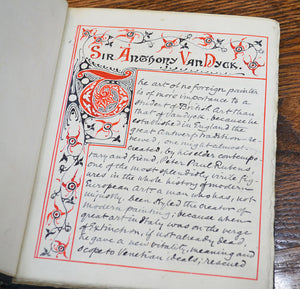 Sir Anthony Van Dyck.
The art of no foreign painter
is of more importance to a
student of British Art than
that of Van Dyck, because he
established in England the
great Antwerp tradition re-
newed, one might almost say
created, by his elder contempo-
rary and friend, Peter Paul Rubens,
one of the most splendidly virile fig-
ures in the whole history of modern
European Art: a man who has, not
unjustly, been styled the creator of
modern painting, because when
great art in Italy was on the verge
of extinction, if not already dead,
he gave a new vitality, meaning and
scope to Venetian ideals, rescued